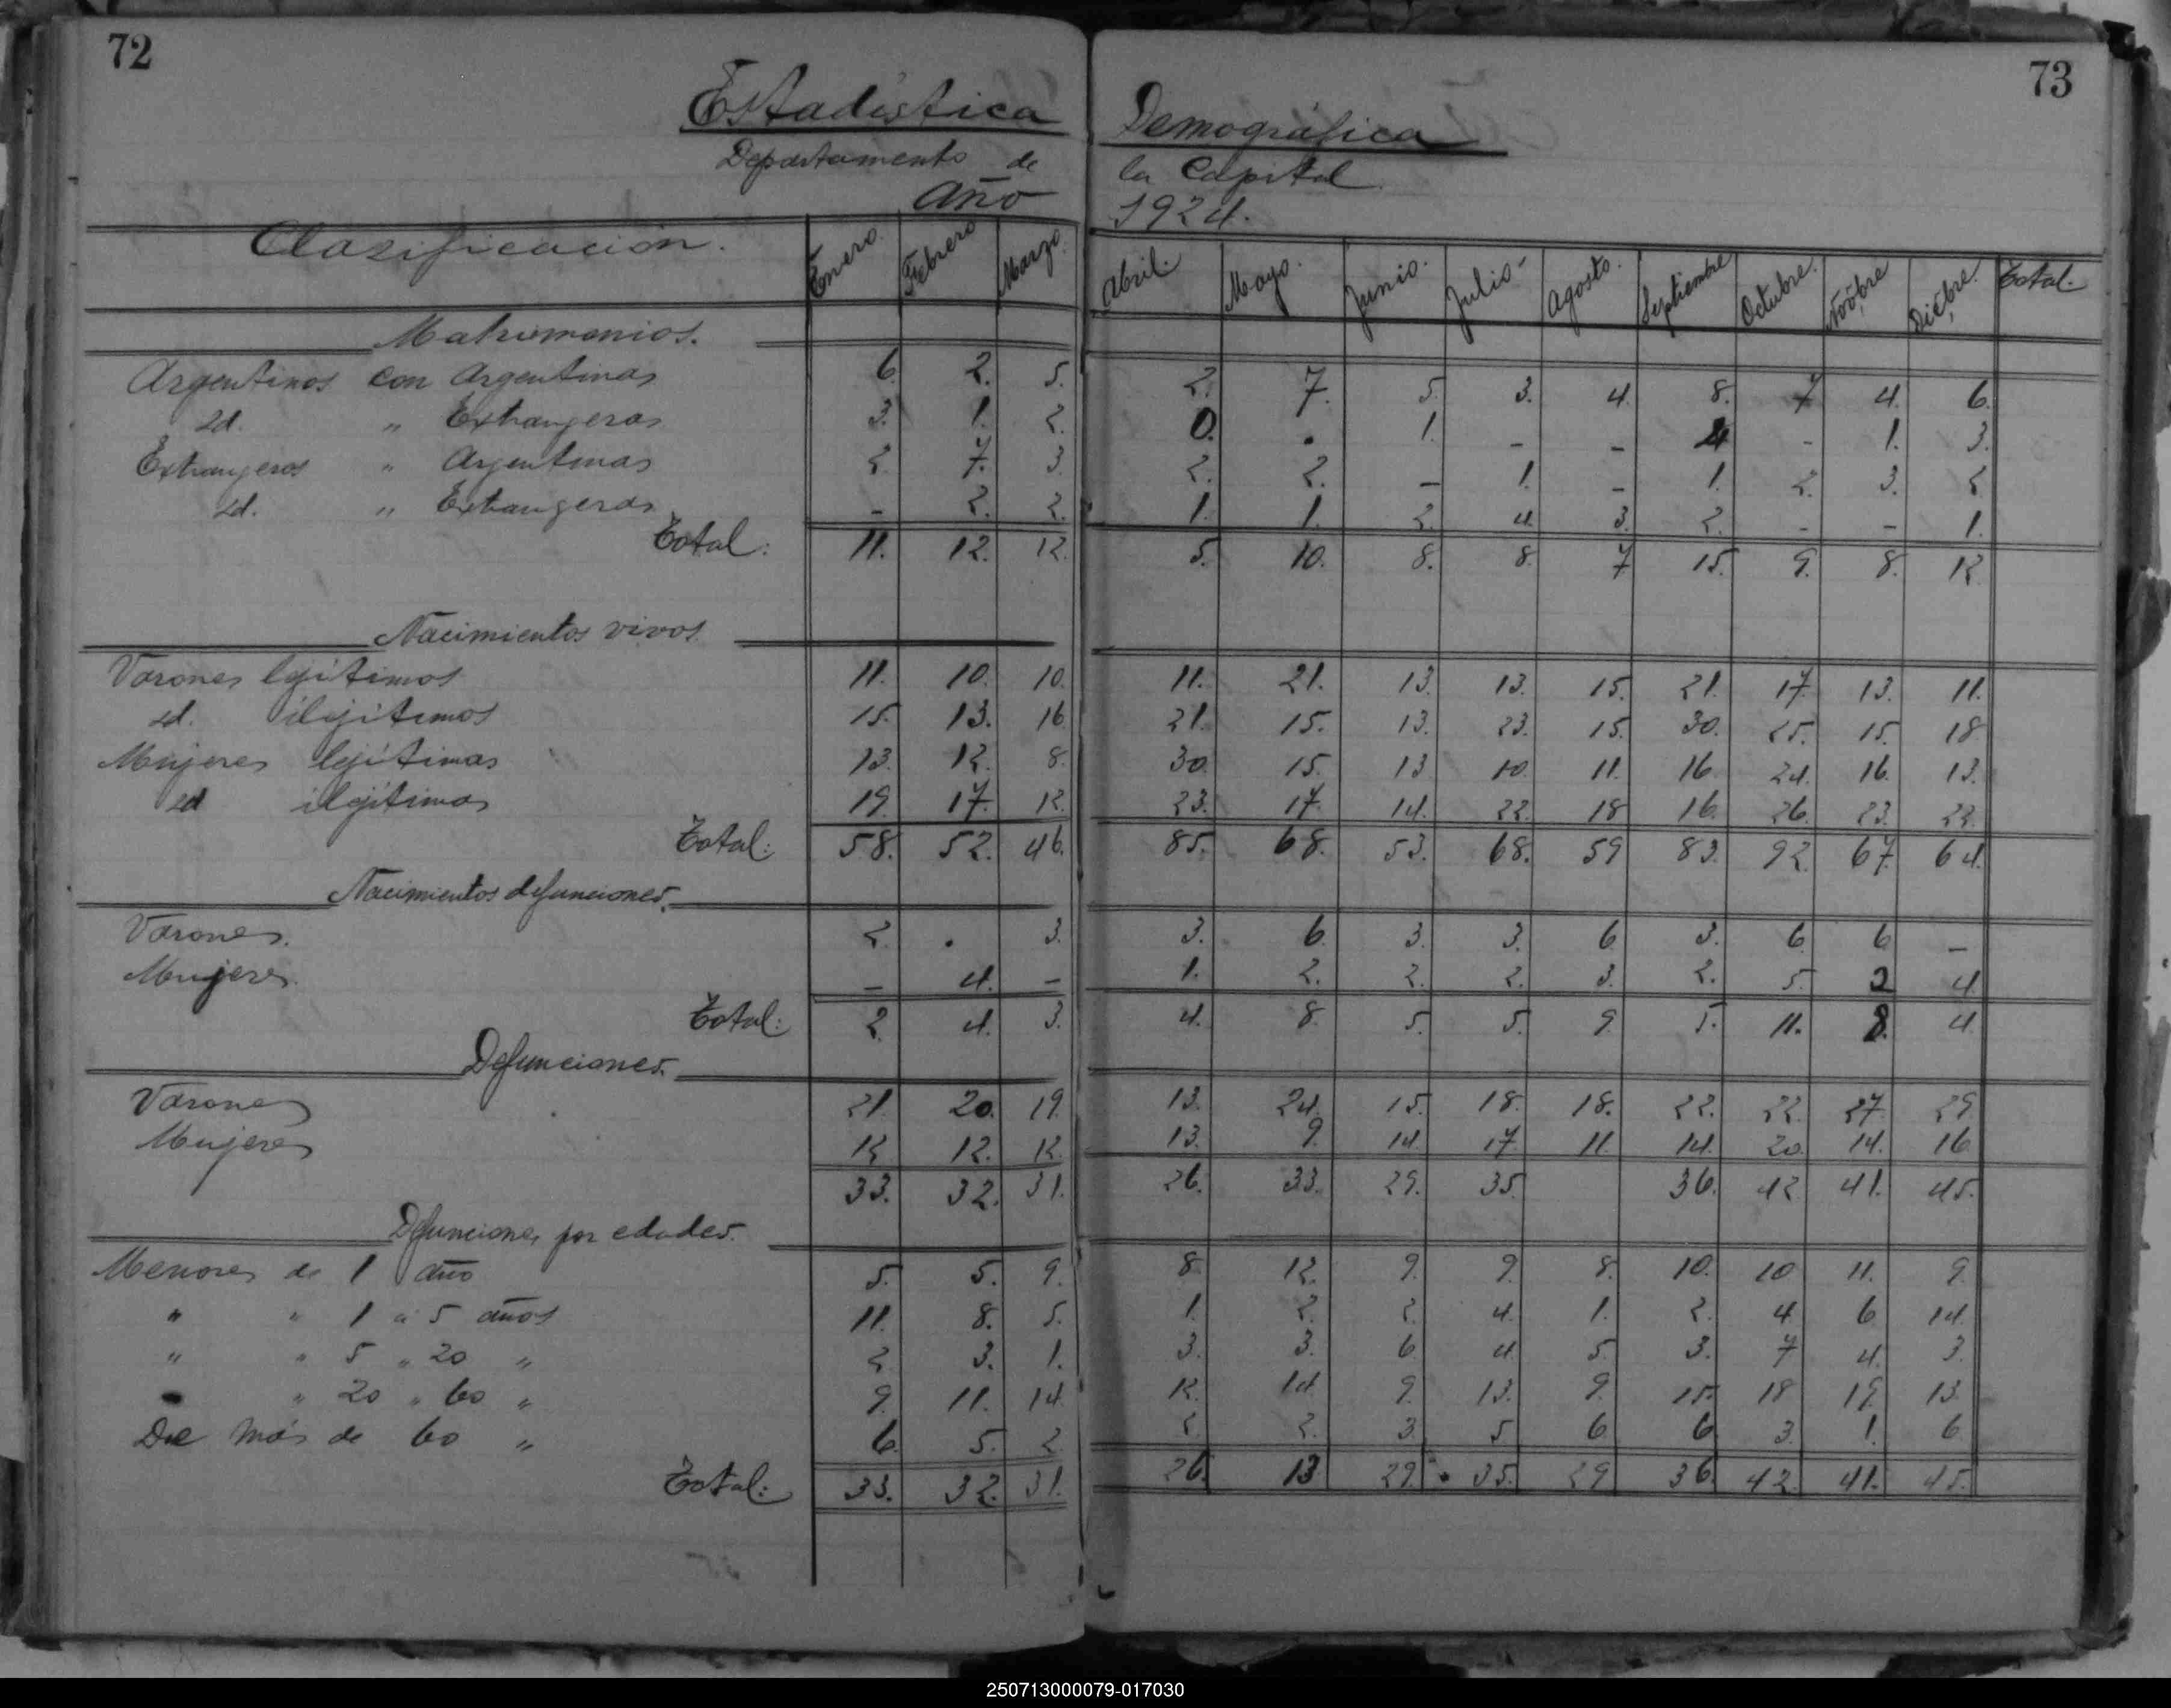 72
73
Estadística Demográfica
Departamento de la Capital.
Año 1924.
Clasificación. Enero. Febrero Marzo. Abril. Mayo. Junio. Julio- Agosto. Septiembre Octubre. Novbre Dicbre. Total.
Matrimonios.
Argentinos con Argentinas 6. 2. 5. 2. 7. 5. 3. 4. 8. 7 4. 6.
Id. " Extrangeras 3. 1. 2. 0. . 1. - - 4 - 1. 3.
Extrangeros " Argentinas 2. 7. 3. 2. 2. - 1. - 1. 2. 3. 2
Id. " Extrangeras - 2. 2. 1. 1. 2. 4. 3. 2. - - 1.
Total: 11. 12. 12. 5. 10. 8. 8. 7 15. 9. 8. 12
Nacimientos vivos
Varones legítimos 11. 10. 10. 11. 21. 13. 13. 15. 21. 17. 13. 11.
id. ilegítimos 15. 13. 16 21. 15. 13. 23. 15. 30. 25. 15. 18
Mujeres legítimas 13. 12. 8. 30. 15. 13 10. 11. 16. 24. 16. 13.
id ilegítimas 19. 17. 12. 23. 17. 14. 22. 18 16. 26. 23. 22.
Total: 58. 52. 46. 85. 68. 53. 68. 59 83. 92. 67. 64.
Nacimientos defunciones.
Varones. 2. . 3. 3. 6. 3. 3. 6 3. 6. 6 -
Mujeres. - 4. - 1. 2. 2. 2. 3. 2. 5. 2 4.
Total: 2. 4. 3. 4. 8. 5. 5. 9. 5. 11. 8. 4.
Defunciones.
Varones 21. 20. 19. 13. 24. 15. 18. 18. 22. 22. 27. 29.
Mujeres 12 12. 12. 13. 9. 14. 17. 11. 14. 20. 14. 16
33. 32. 31. 26. 33. 29. 35. 36. 42 41. 45.
Defunciones por edades.
Menores de 1 año 5. 5. 9. 8. 12. 9. 9. 8. 10. 10 11. 9.
" " 1 a 5 años 11. 8. 5. 1. 2. 2. 4. 1. 2. 4 6 14.
" " 5 " 20 " 2. 3. 1. 3. 3. 6. 4. 5. 3. 7 4. 3.
" 20 " 60 " 9. 11. 14. 12. 14 9. 13. 9. 15. 18 19. 13.
De más de 60 " 6. 5. 2. 2 2. 3. 5. 6. 6 3. 1. 6
Total: 33. 32. 31. 26. 13 29. 35. 29 36. 42. 41. 45.
250713000079-017030